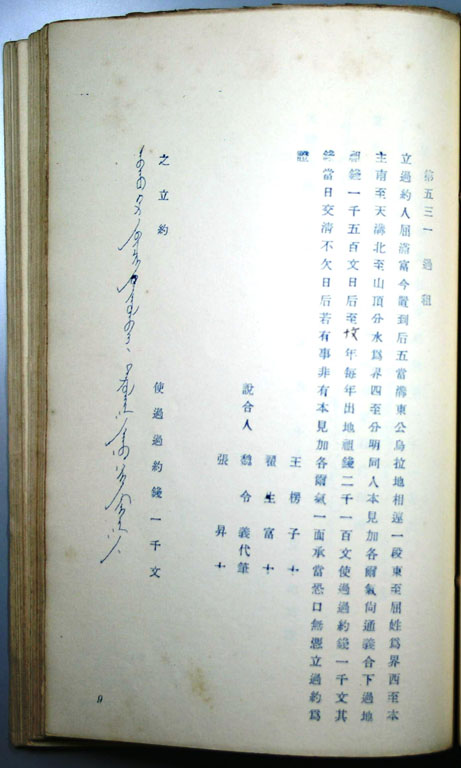 第五三一 過租
立過約人屈滿富今置到后五當溝東公烏拉地相連一段東至屈姓爲界西至本
主南至天溝北至山頂分水爲界四至分明同人本見加各爾氣尙通義合下過地
租錢一千五百文日后至 年每年出地租錢二千一百文使過過約錢一千文其
錢當日交清不欠日后若有事非有本見加各爾氣一面承當恐口無凴立過約爲
證
王楞子十
翟生富十
說合人 魏令義代筆
張昇十
使過過約錢一千文
之立約
9